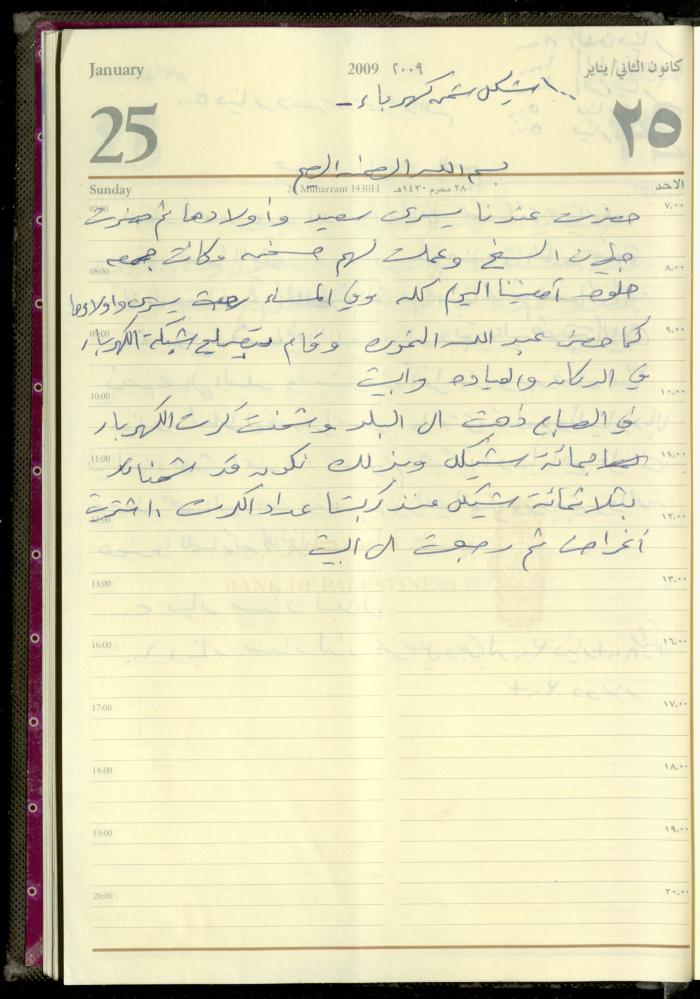 January 2009 ٢٠٠٩ كانون الثاني/يناير
١٠٠ شيكل شحن كهرباء -
25 ٢٥
بسم الله الرحمن الرحيم
Sunday 28 Muharram 1430H ٢٨ محرم ١٤٣٠هـ الاحد
07:00 ٧,٠٠
حضرت عندنا يسرى سعيد وأولادها ثم حضرت
جيران الشيخ وعملت لهم سخنه وكانت جمعه
08:00 ٨,٠٠
حلوه أمضينا اليوم كله وفي المساء رجعت يسرى وأولادها
09:00 ٩,٠٠
كما حضر عبد الله وقام بتصليح شبكة الكهرباء
في الدكان والعياده والبيت
10:00 ١٠,٠٠
في الصباح ذهبت الى البلد وشحنت كرت الكهرباء
11:00 ١١,٠٠
بمائة شيكل وبذلك نكون قد شحناه
بثلاثمائة شيكل منذ ركبنا عداد الكرت، اشتريت
12:00 ١٢,٠٠
أغراضا ثم رجعت الى البيت
13:00 ١٣,٠٠
BANK OF PALESTINE PLC
16:00 ١٦,٠٠
17:00 ١٧,٠٠
18:00 ١٨,٠٠
19:00 ١٩,٠٠
20:00 ٢٠,٠٠